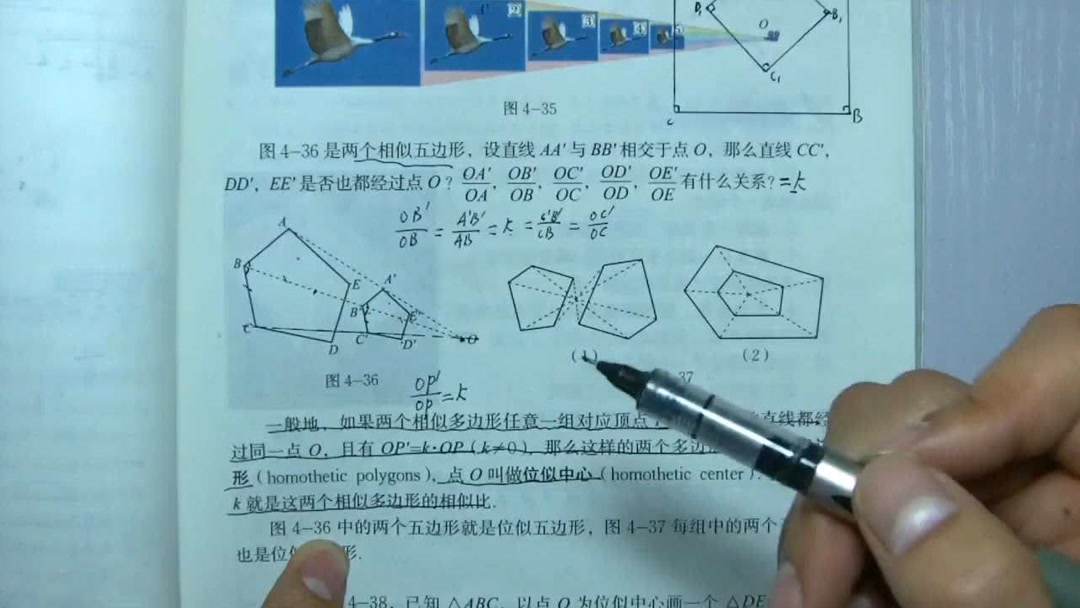 2
3
4
D₁ O B₁
C₁
C B
图 4-35
图 4-36 是两个相似五边形，设直线 AA′ 与 BB′ 相交于点 O，那么直线 CC′，
DD′，EE′ 是否也都经过点 O？OA′/OA，OB′/OB，OC′/OC，OD′/OD，OE′/OE 有什么关系？=k
OB′/OB = A′B′/AB = k = C′B′/CB = OC′/OC
A
B E A′
B′ E′
C D C′ D′ O
(1) (2)
图 4-36 37
OP′/OP = k
一般地，如果两个相似多边形任意一组对应顶点 直线都经
过同一点 O，且有 OP′=k·OP（k≠0），那么这样的两个多边
形（homothetic polygons），点 O 叫做位似中心（homothetic center）
k 就是这两个相似多边形的相似比.
图 4-36 中的两个五边形就是位似五边形，图 4-37 每组中的两个
也是位 形.
4-38，已知 △ABC，以点 O 为位似中心画一个 △DE